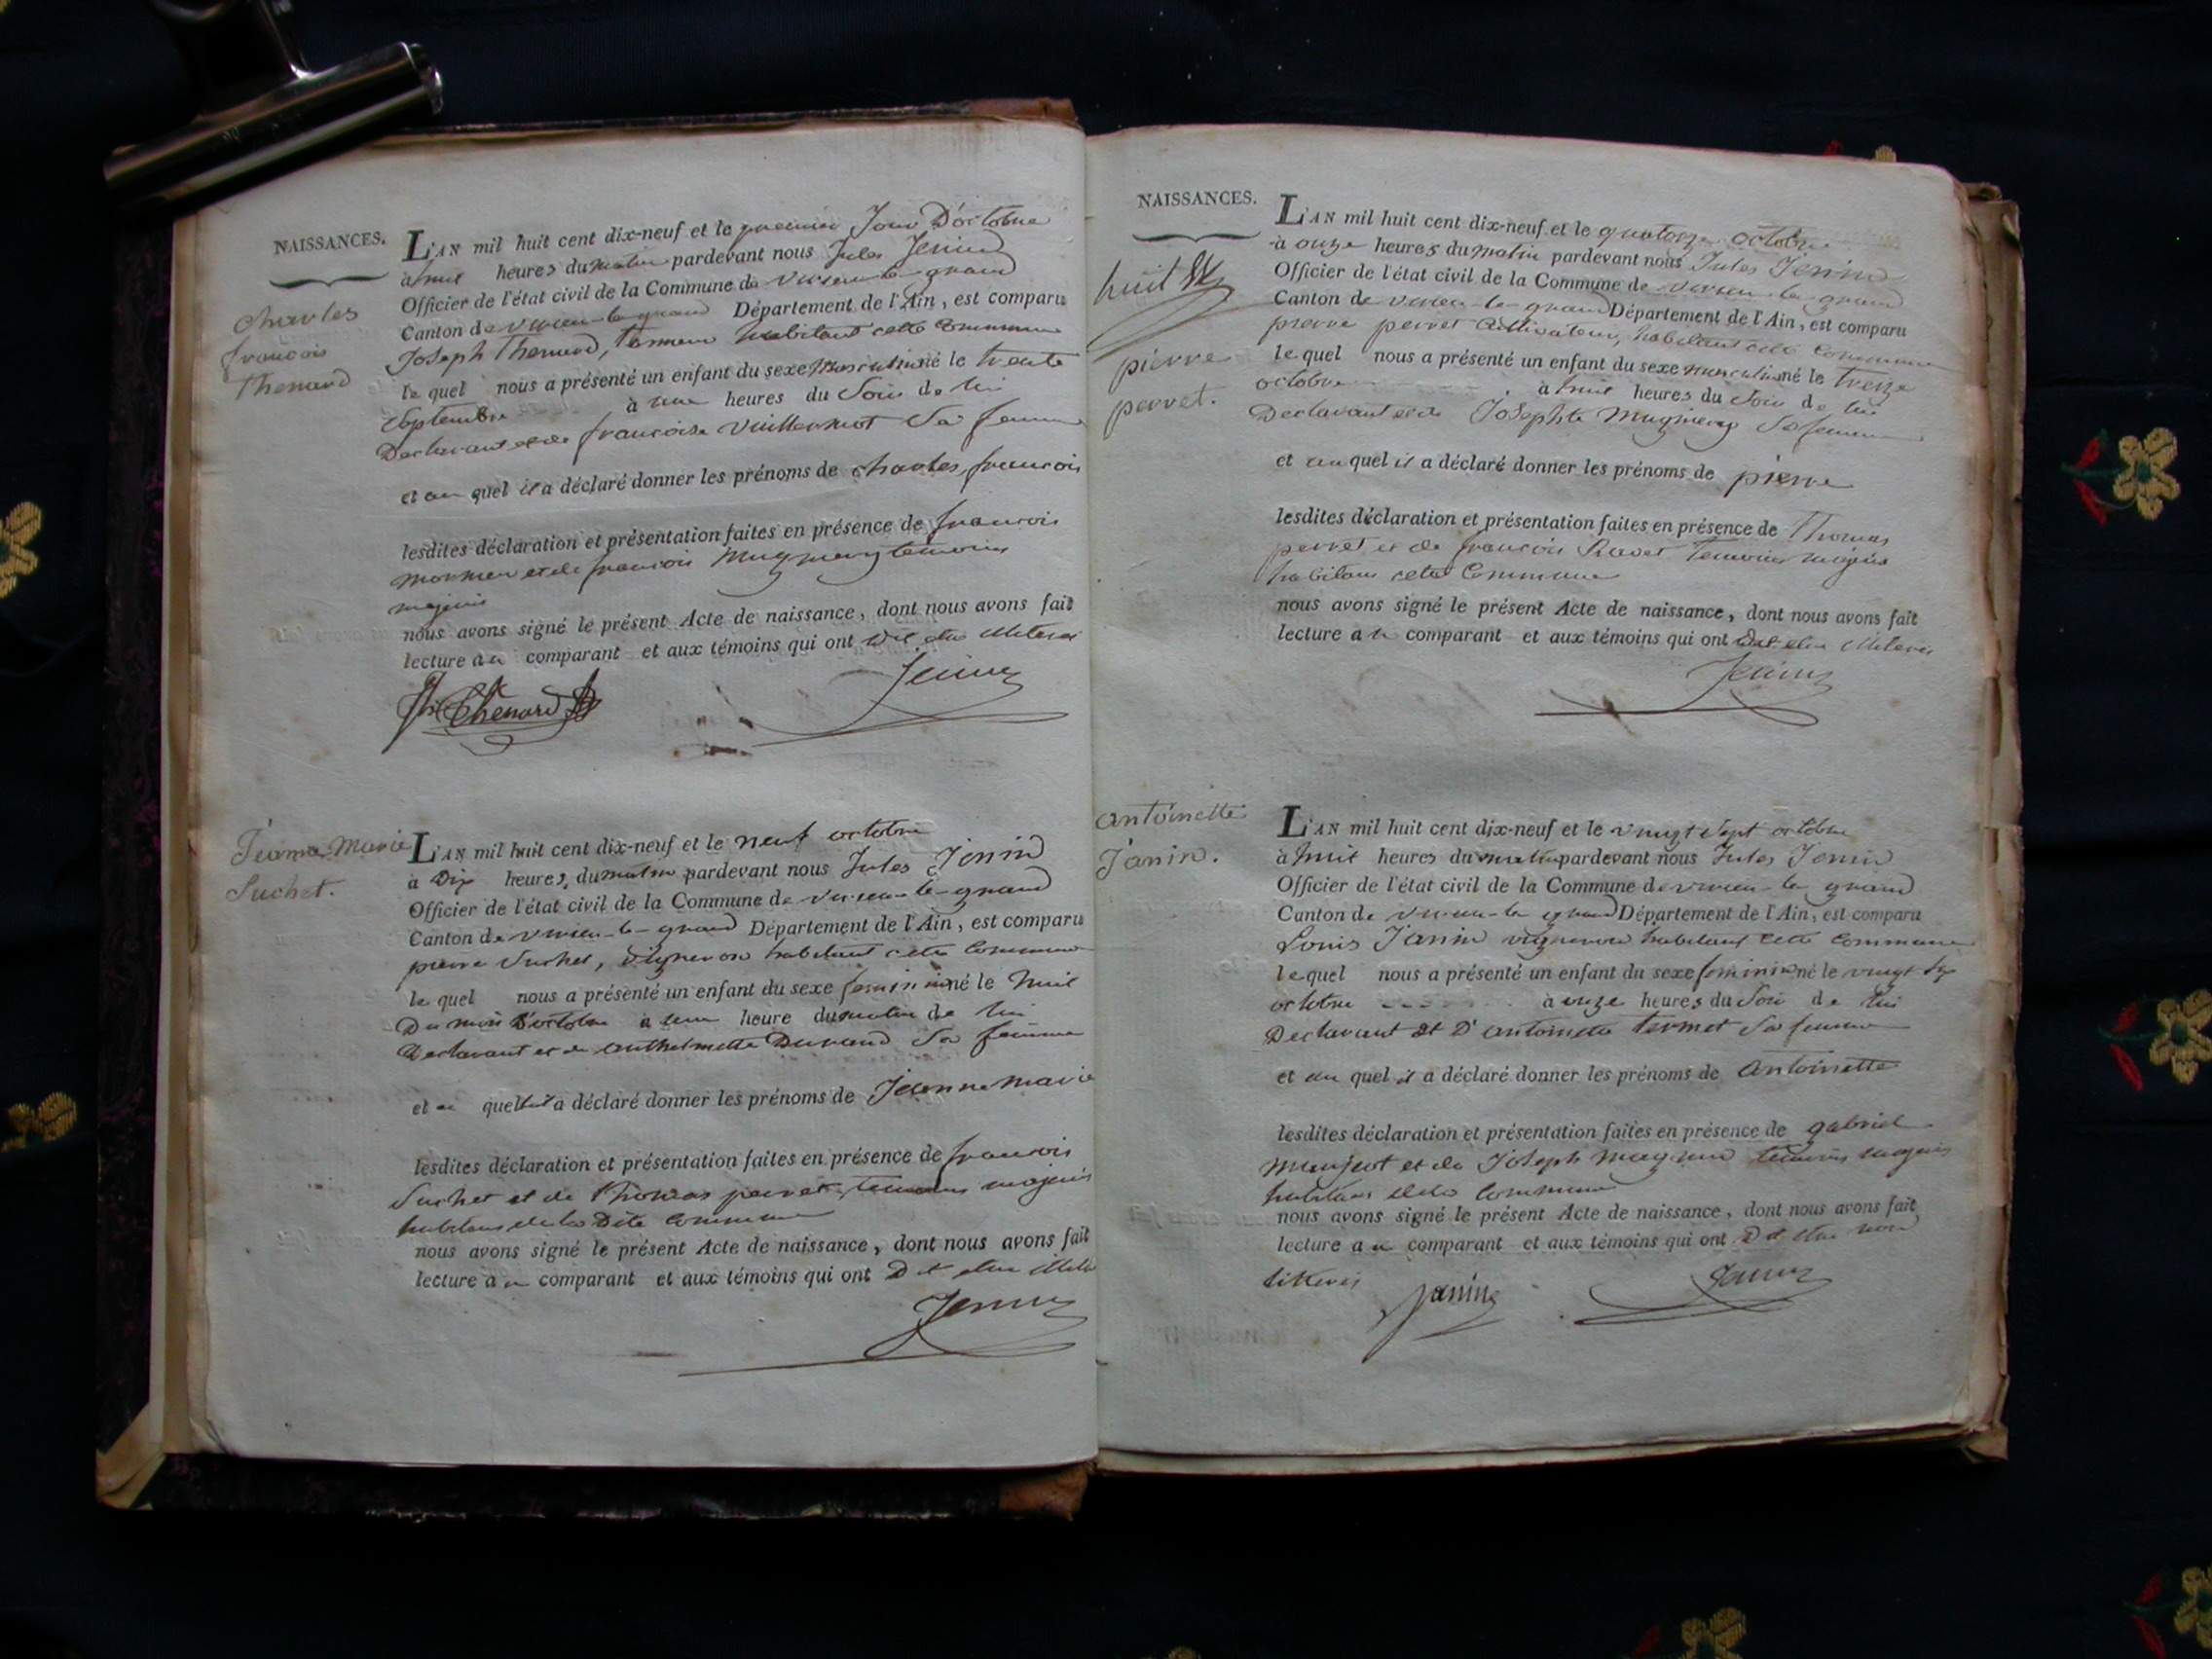 NAISSANCES.
charles
francois
Thenard
L'AN mil huit cent dix-neuf et le premier Jour D'octobre
à huit heures du matin pardevant nous Jules Jenin
Officier de l'état civil de la Commune de virieu-le-grand
Canton de virieu-le-grand Département de l'Ain, est comparu
Joseph Thenard, tanneur habitant cette Commune
le quel nous a présenté un enfant du sexe masculin né le trente
Septembre à une heures du Soir de lui
Declarant et de francoise Vuillermot Sa femme
et au quel il a déclaré donner les prénoms de charles francois
lesdites déclaration et présentation faites en présence de francois
et de francois Mugnery temoins
majeurs
nous avons signé le présent Acte de naissance, dont nous avons fait
lecture au comparant et aux témoins qui ont dit etre illiterés
Thenard Jenin
Jeanne Marie
Suchet.
L'AN mil huit cent dix-neuf et le neuf octobre
à Dix heures du matin pardevant nous Jules Jenin
Officier de l'état civil de la Commune de virieu-le-grand
Canton de virieu-le-grand Département de l'Ain, est comparu
pierre Suchet, vigneron habitant cette Commune
le quel nous a présenté un enfant du sexe feminin né le huit
Du mois D'octobre à une heure du matin de lui
Declarant et de anthelmette Durand Sa femme
et a quelle il a déclaré donner les prénoms de Jeanne Marie
lesdites déclaration et présentation faites en présence de francois
Suchet et de Thomas perret temoins majeurs
habitans de la Dite Commune
nous avons signé le présent Acte de naissance, dont nous avons fait
lecture au comparant et aux témoins qui ont Dit etre
Jenin
NAISSANCES.
huit
pierre
perret.
L'AN mil huit cent dix-neuf et le quatorze octobre
à onze heures du matin pardevant nous Jules Jenin
Officier de l'état civil de la Commune de virieu-le-grand
Canton de virieu-le-grand Département de l'Ain, est comparu
pierre perret Cultivateur, habitant cette Commune
le quel nous a présenté un enfant du sexe masculin né le treize
octobre à huit heures du Soir de lui
Declarant et de Josephte Mugnery Sa femme
et au quel il a déclaré donner les prénoms de pierre
lesdites déclaration et présentation faites en présence de Thomas
perret et de francois Ravet temoins majeurs
habitans cette Commune
nous avons signé le présent Acte de naissance, dont nous avons fait
lecture au comparant et aux témoins qui ont Dit etre illiterés
Jenin
antoinette
Janin.
L'AN mil huit cent dix-neuf et le vingt Sept octobre
à huit heures du matin pardevant nous Jules Jenin
Officier de l'état civil de la Commune de virieu-le-grand
Canton de virieu-le-grand Département de l'Ain, est comparu
Louis Janin vigneron habitant cette Commune
le quel nous a présenté un enfant du sexe feminin né le vingt Six
octobre à onze heures du Soir de lui
Declarant et D'antoinette termet Sa femme
et au quel il a déclaré donner les prénoms de antoinette
lesdites déclaration et présentation faites en présence de gabriel
et de Joseph temoins majeurs
habitans Commune
nous avons signé le présent Acte de naissance, dont nous avons fait
lecture au comparant et aux témoins qui ont Dit etre non
litterés Janin Jenin